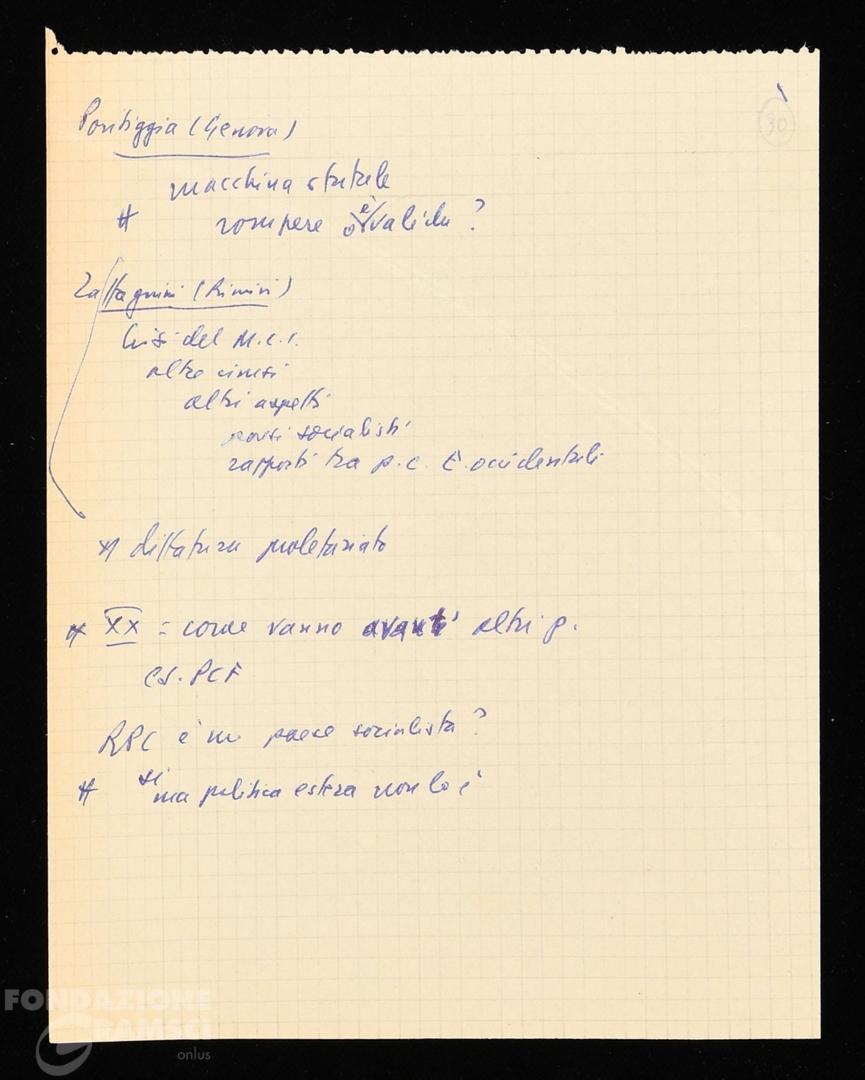 90
Pontiggia (Genova)
macchina statale
# rompere o è valida ?
Zattagnini (Rimini)
Crisi del M.C.I.
altre cinesi
altri aspetti
paesi socialisti
rapporti tra p.c. E. occidentale
* dittatura proletariato
* XX = come vanno avanti altri p.
es. PCF
RPC è un paese socialista ?
# si ma politica estera non lo è
FONDAZIONE
GRAMSCI
onlus